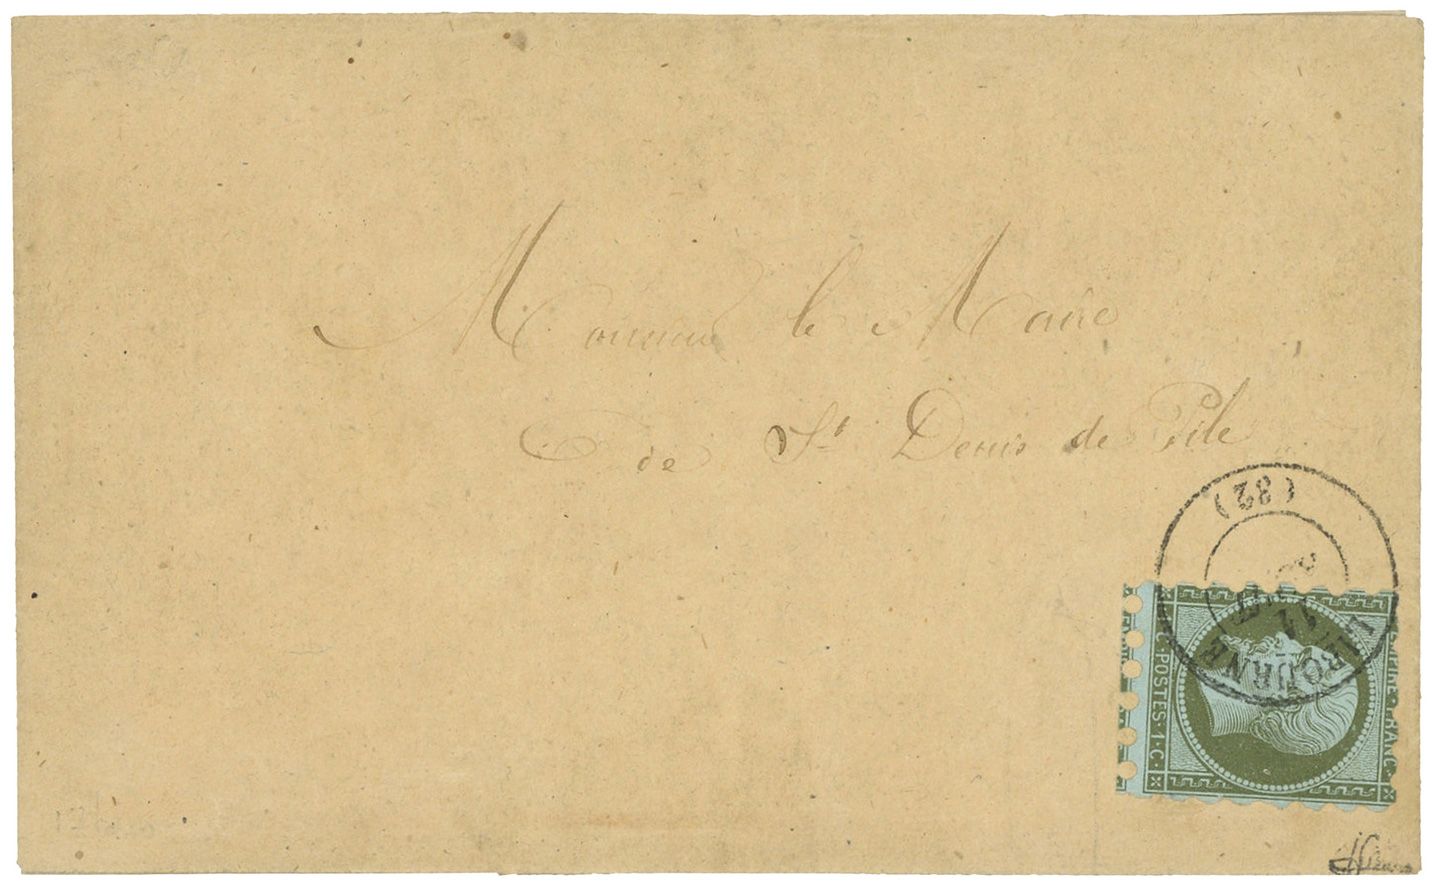 Monsieur le Maire
de St Denis de Pile
(32)
LIBOURNE
EMPIRE·FRANC·
1·C·POSTES·1·C·